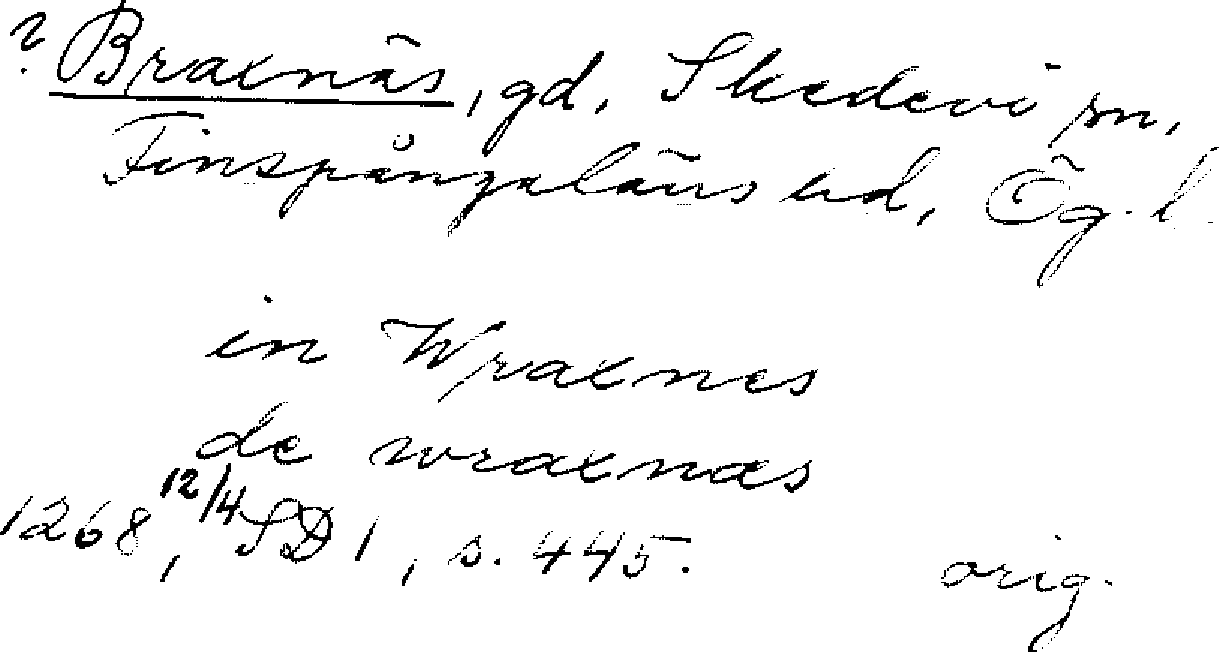 ? Braxnäs, gd, Skedevi sn,
Finspångaläns hd, Ög. l.
in Wraxnes
de wraxnæs
1268, 12/4 SD 1, s. 445. orig.